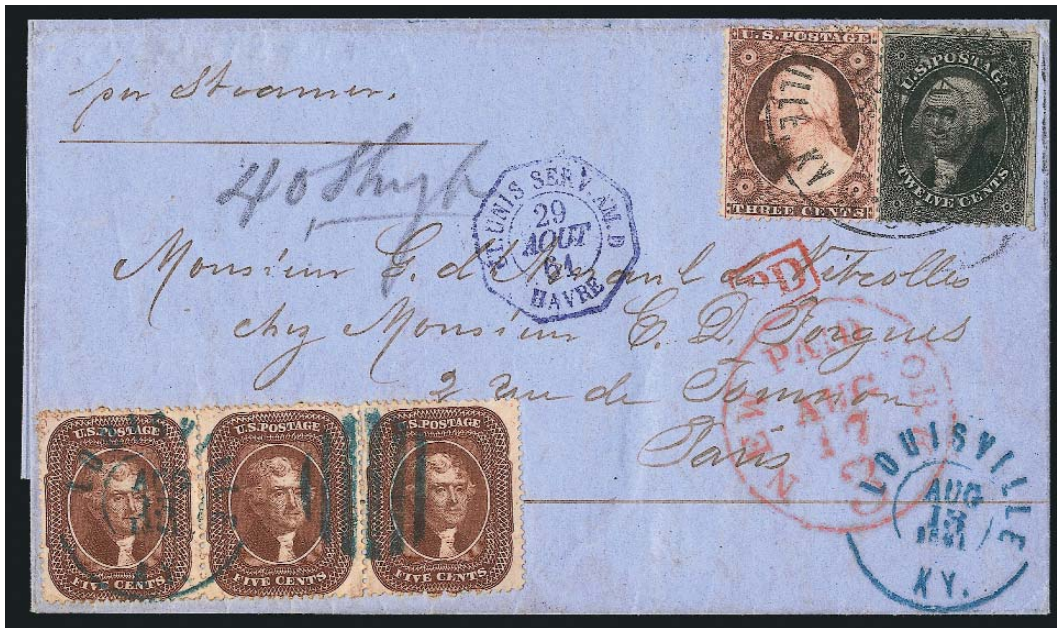 per Steamer.
U.S. POSTAGE
THREE CENTS
U.S. POSTAGE
TWELVE CENTS
40
ET. UNIS SERV. AM. D
29
AOUT
61
HAVRE
PD
Monsieur G. de de Vitrolles
chez Monsieur E. D. Forgues
2 rue de Tournon
Paris
NEW YORK
PAID
AUG
17
LOUISVILLE
AUG
13
1861
KY.
U.S. POSTAGE
FIVE CENTS
U.S. POSTAGE
FIVE CENTS
U.S. POSTAGE
FIVE CENTS